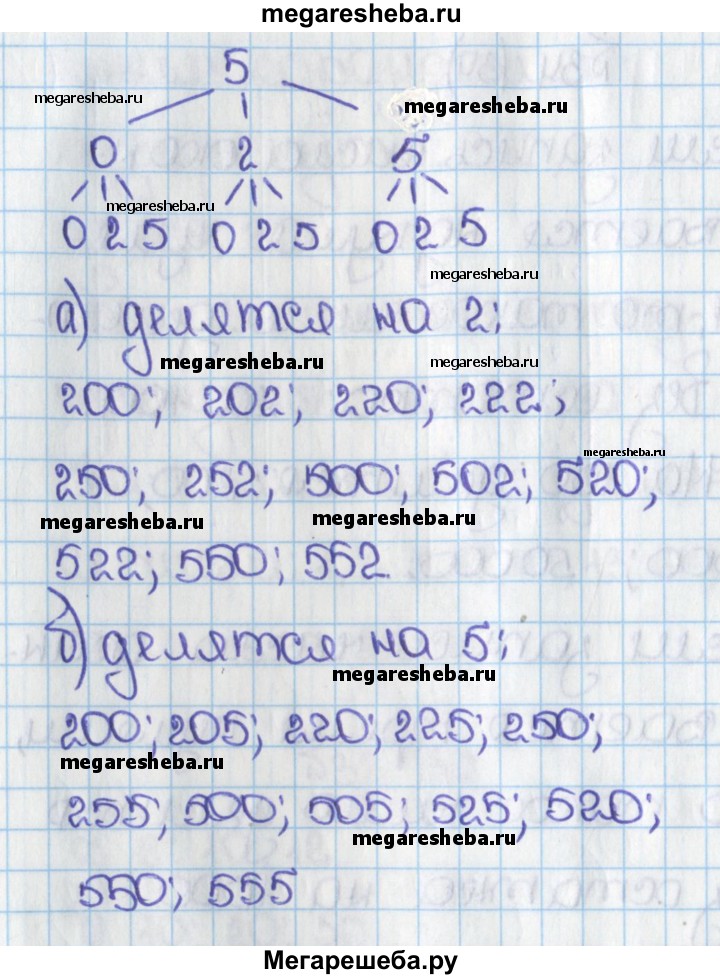 megaresheba.ru
5
megaresheba.ru
megaresheba.ru
0 2 5
megaresheba.ru
0 2 5 0 2 5 0 2 5
megaresheba.ru
а) делятся на 2:
megaresheba.ru megaresheba.ru
200; 202; 220; 222;
megaresheba.ru
250; 252; 500; 502; 520;
megaresheba.ru megaresheba.ru
522; 550; 552.
б) делятся на 5:
megaresheba.ru
200; 205; 220; 225; 250;
megaresheba.ru
255; 500; 505; 525; 520;
megaresheba.ru
550; 555
Мегарешеба.ру